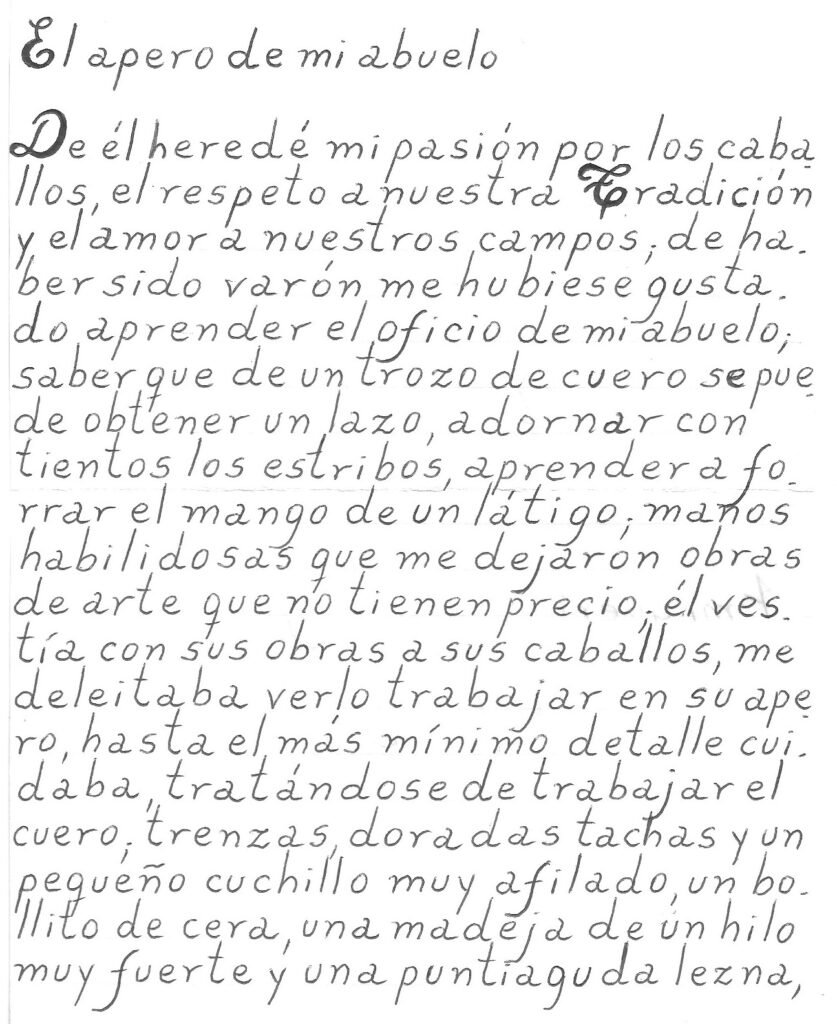 El apero de mi abuelo
De él heredé mi pasión por los caba-
llos, el respeto a nuestra Tradición
y el amor a nuestros campos; de ha-
ber sido varón me hubiese gusta-
do aprender el oficio de mi abuelo;
saber que de un trozo de cuero se pue-
de obtener un lazo, adornar con
tientos los estribos, aprender a fo-
rrar el mango de un látigo; manos
habilidosas que me dejarón obras
de arte que no tienen precio; él ves-
tía con sus obras a sus caballos, me
deleitaba verlo trabajar en su ape-
ro, hasta el más mínimo detalle cui-
daba, tratándose de trabajar el
cuero; trenzas, doradas tachas y un
pequeño cuchillo muy afilado, un bo-
llito de cera, una madeja de un hilo
muy fuerte y una puntiaguda lezna,